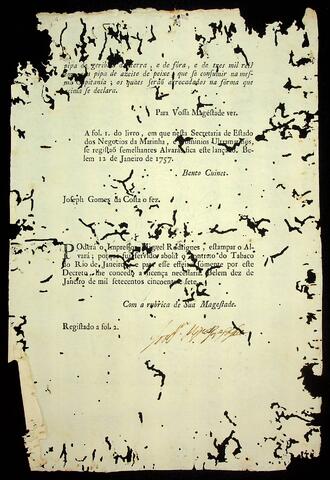 pipa de geribita da terra, e de fóra, e de tres mil reis
pipa de azeite de peixe, que se consumir na mes-
ma Capitania; os quaes serão arrecadados na fórma que
acima se declara.
Para Vossa Magestade ver.
A fol. 1. do livro, em que nesta Secretaria de Estado
dos Negocios da Marinha, e Dominios Ultramarinos,
se registaõ semelhantes Alvarás, fica este lançado. Be-
lem 12 de Janeiro de 1757.
Bento Cuinet.
Joseph Gomes da Costa o fez.
POderá o Impressor Miguel Rodrigues, estampar o Al-
vará; porque fui servido abolir o contrato do Tabaco
do Rio de Janeiro; e para esse effeito sómente por este
Decreto lhe concedo a licença necessaria. Belem dez de
Janeiro de mil setecentos cincoenta e sete.
Com a rubrica de Sua Magestade.
Registado a fol. 2.